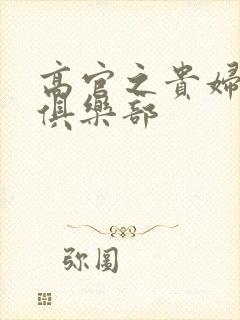 高官之貴婦
俱樂部
弥圖